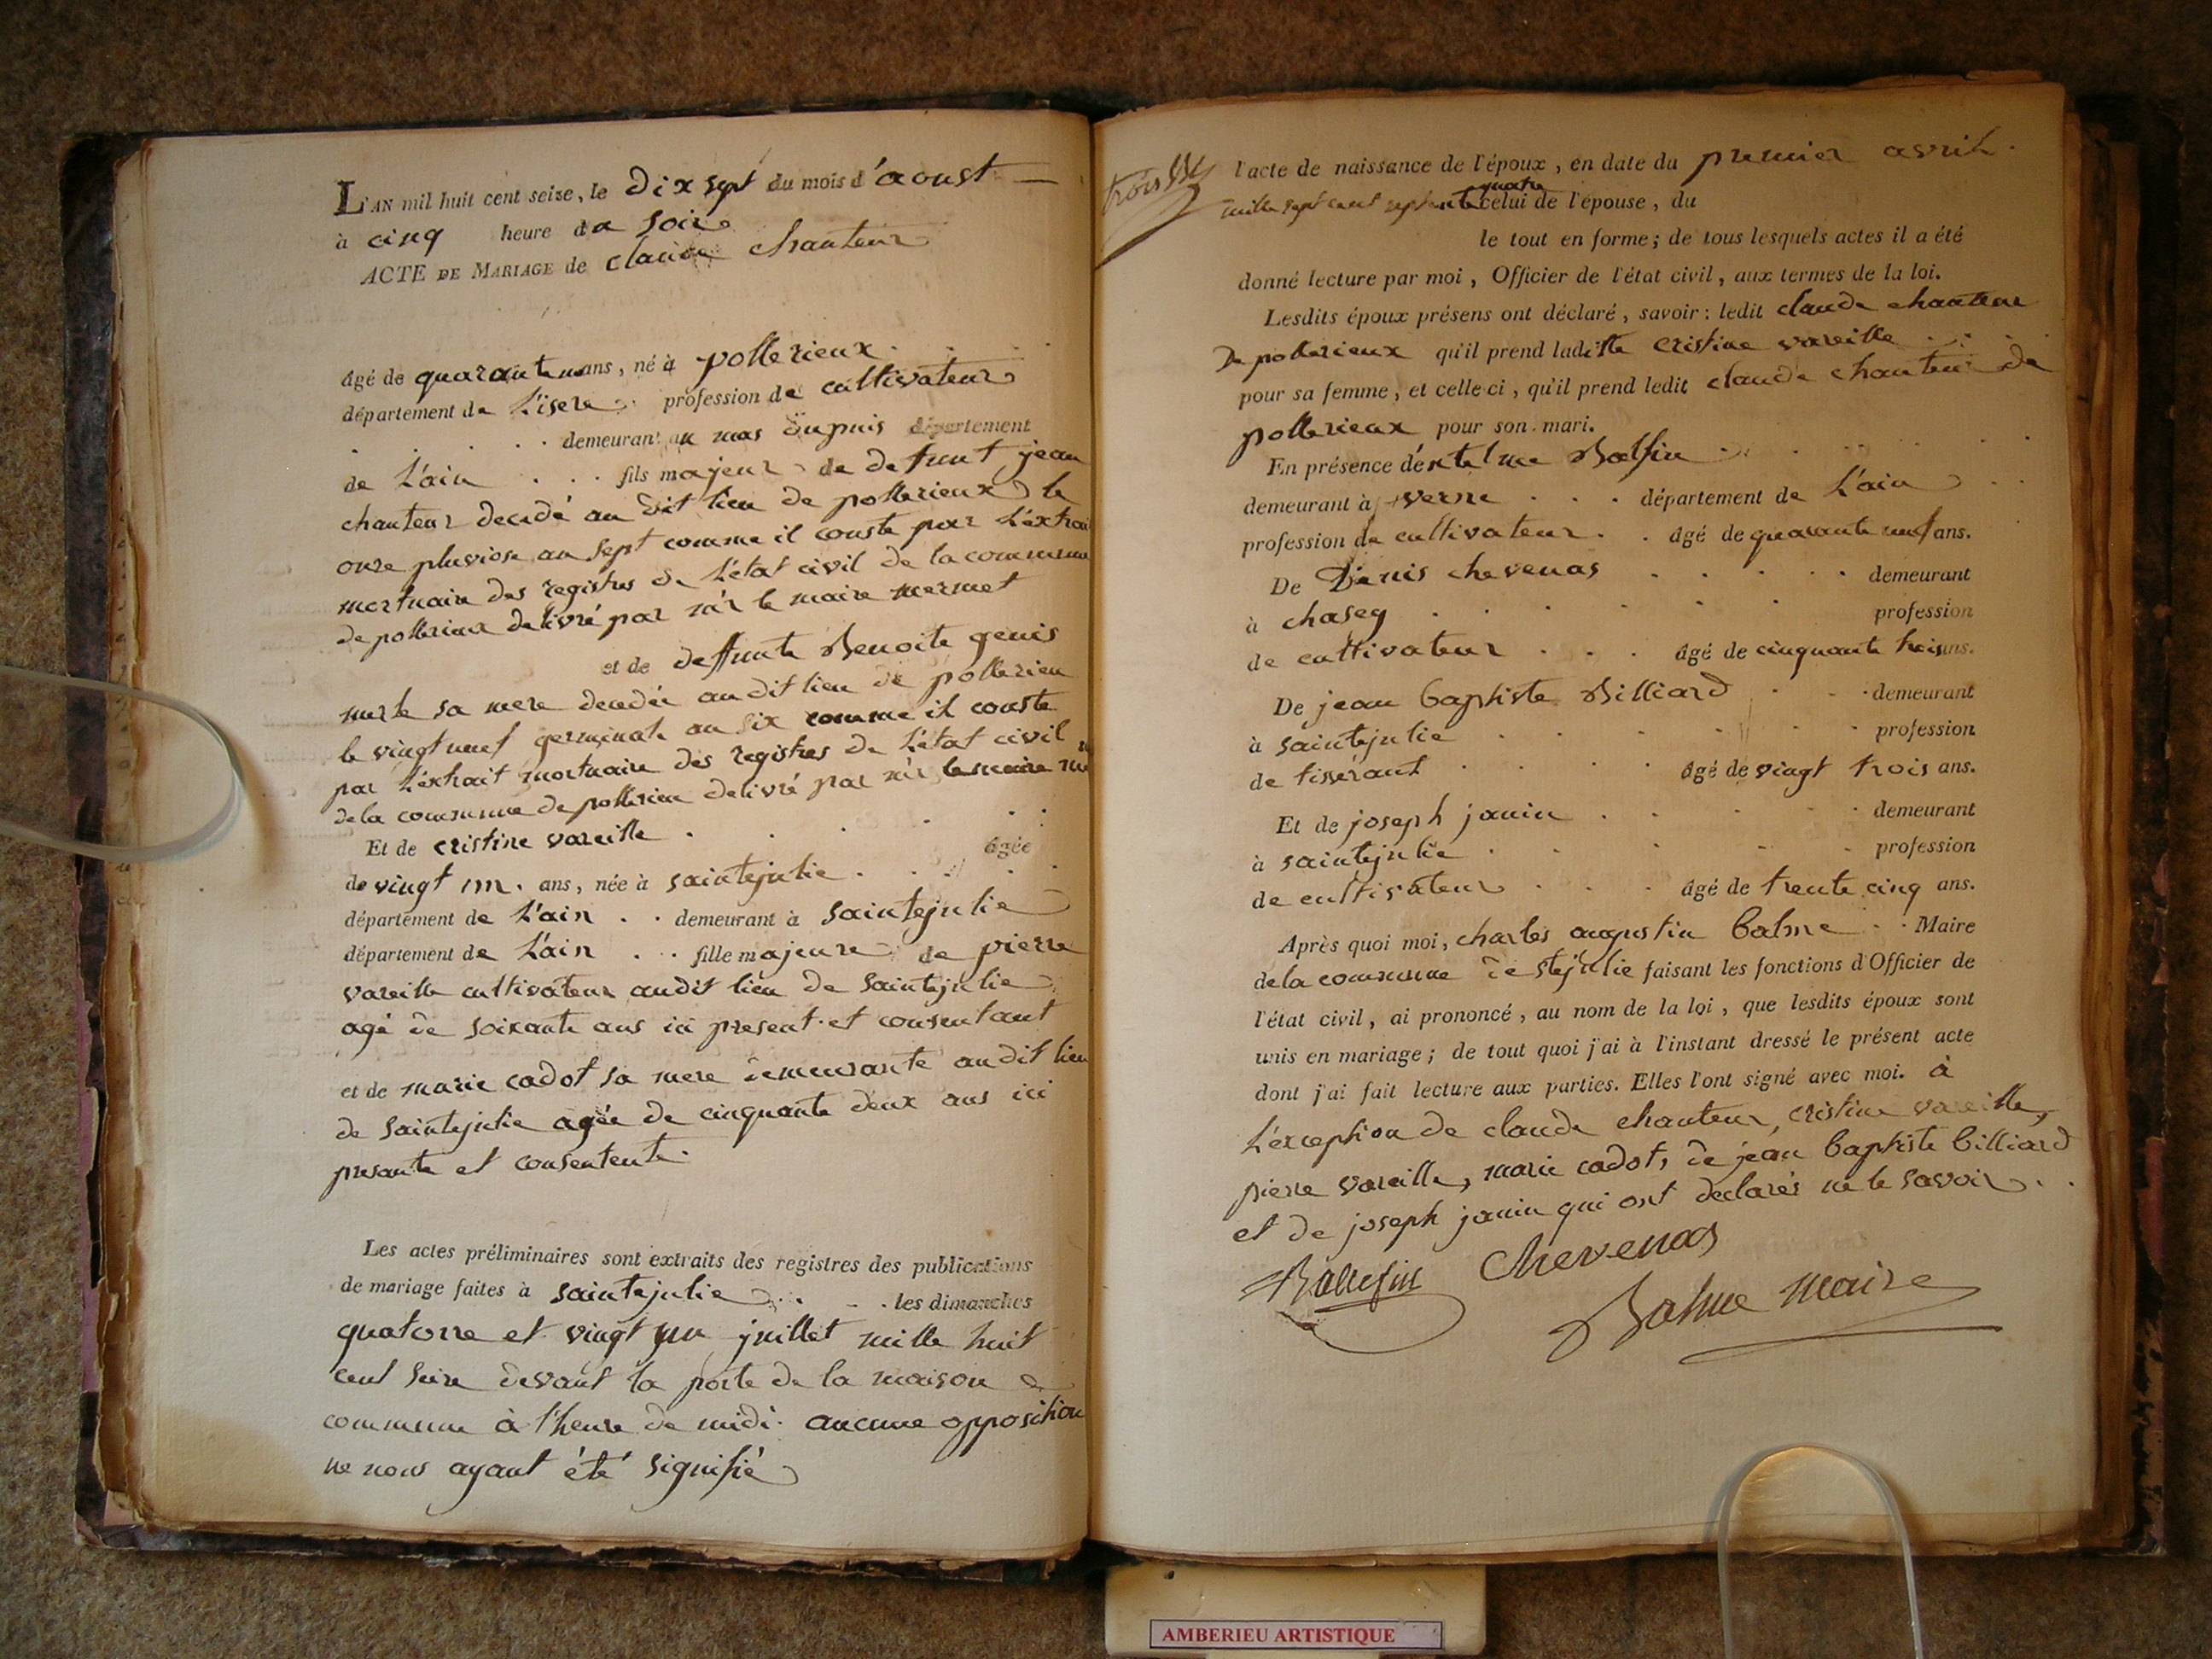 L'AN mil huit cent seize, le dix sept du mois d'aoust
à cinq heure da soir
ACTE DE MARIAGE de claude chanteur
âgé de quarante ans, né à pollerieux
département de L'isere profession de cultivateur
demeurant au mas Dupuis département
de L'ain fils majeur de defunt jean
chanteur decedé au dit lieu de pollerieux le
onze pluviose an sept comme il conste par L'extrai
mortuaire des registres de L'état civil de la commune
de pollerieu delivré par m'r le maire mermet
et de deffunte Benoite genis
morte sa mere decedée au dit lieu de pollerieu
le vingt neuf germinal an six comme il conste
par L'éxtrait mortuaire des registres de L'état civil
de la commune de pollerieu delivré par m'r le maire
Et de cristine vareille âgée
de vingt un ans, née à saintejulie
département de L'ain demeurant à saintejulie
département de L'ain fille majeure de pierre
vareille cultivateur audit lieu de saintejulie
agé de soixante ans ici present et consentant
et de marie cadot sa mere demeurante audit lieu
de saintejulie agée de cinquante deux ans ici
presante et consentente
Les actes préliminaires sont extraits des registres des publications
de mariage faites à saintejulie les dimanches
quatorze et vingt un juillet mille huit
cent seize devant la porte de la maison
commune à l'heure de midi aucune opposition
ne nous ayant été signifié
l'acte de naissance de l'époux, en date du premier avril
quatre
mille sept cent septente celui de l'épouse, du
le tout en forme; de tous lesquels actes il a été
donné lecture par moi, Officier de l'état civil, aux termes de la loi.
Lesdits époux présens ont déclaré, savoir: ledit claude chanteur
De pollerieux qu'il prend ladite cristine vareille
pour sa femme, et celle-ci, qu'il prend ledit claude chanteur de
pollerieux pour son mari.
En présence d'entelme
demeurant à verne département de L'ain
profession de cultivateur âgé de quarante neuf ans.
De Denis chevenas demeurant
à chasey profession
de cultivateur âgé de cinquante trois ans.
De jean baptiste Billiard demeurant
à saintejulie profession
de tissérant âgé de vingt trois ans.
Et de joseph janin demeurant
à saintejulie profession
de cultivateur âgé de trente cinq ans.
Après quoi moi, charles augustin balme Maire
de la commune de stejulie faisant les fonctions d'Officier de
l'état civil, ai prononcé, au nom de la loi, que lesdits époux sont
unis en mariage; de tout quoi j'ai à l'instant dressé le présent acte
dont j'ai fait lecture aux parties. Elles l'ont signé avec moi. à
L'éxception de claude chanteur, cristine vareille,
pierre vareille, marie cadot, de jean baptiste billiard
et de joseph janin qui ont declarés ne le savoir
Chevenas
Balme maire
AMBERIEU ARTISTIQUE